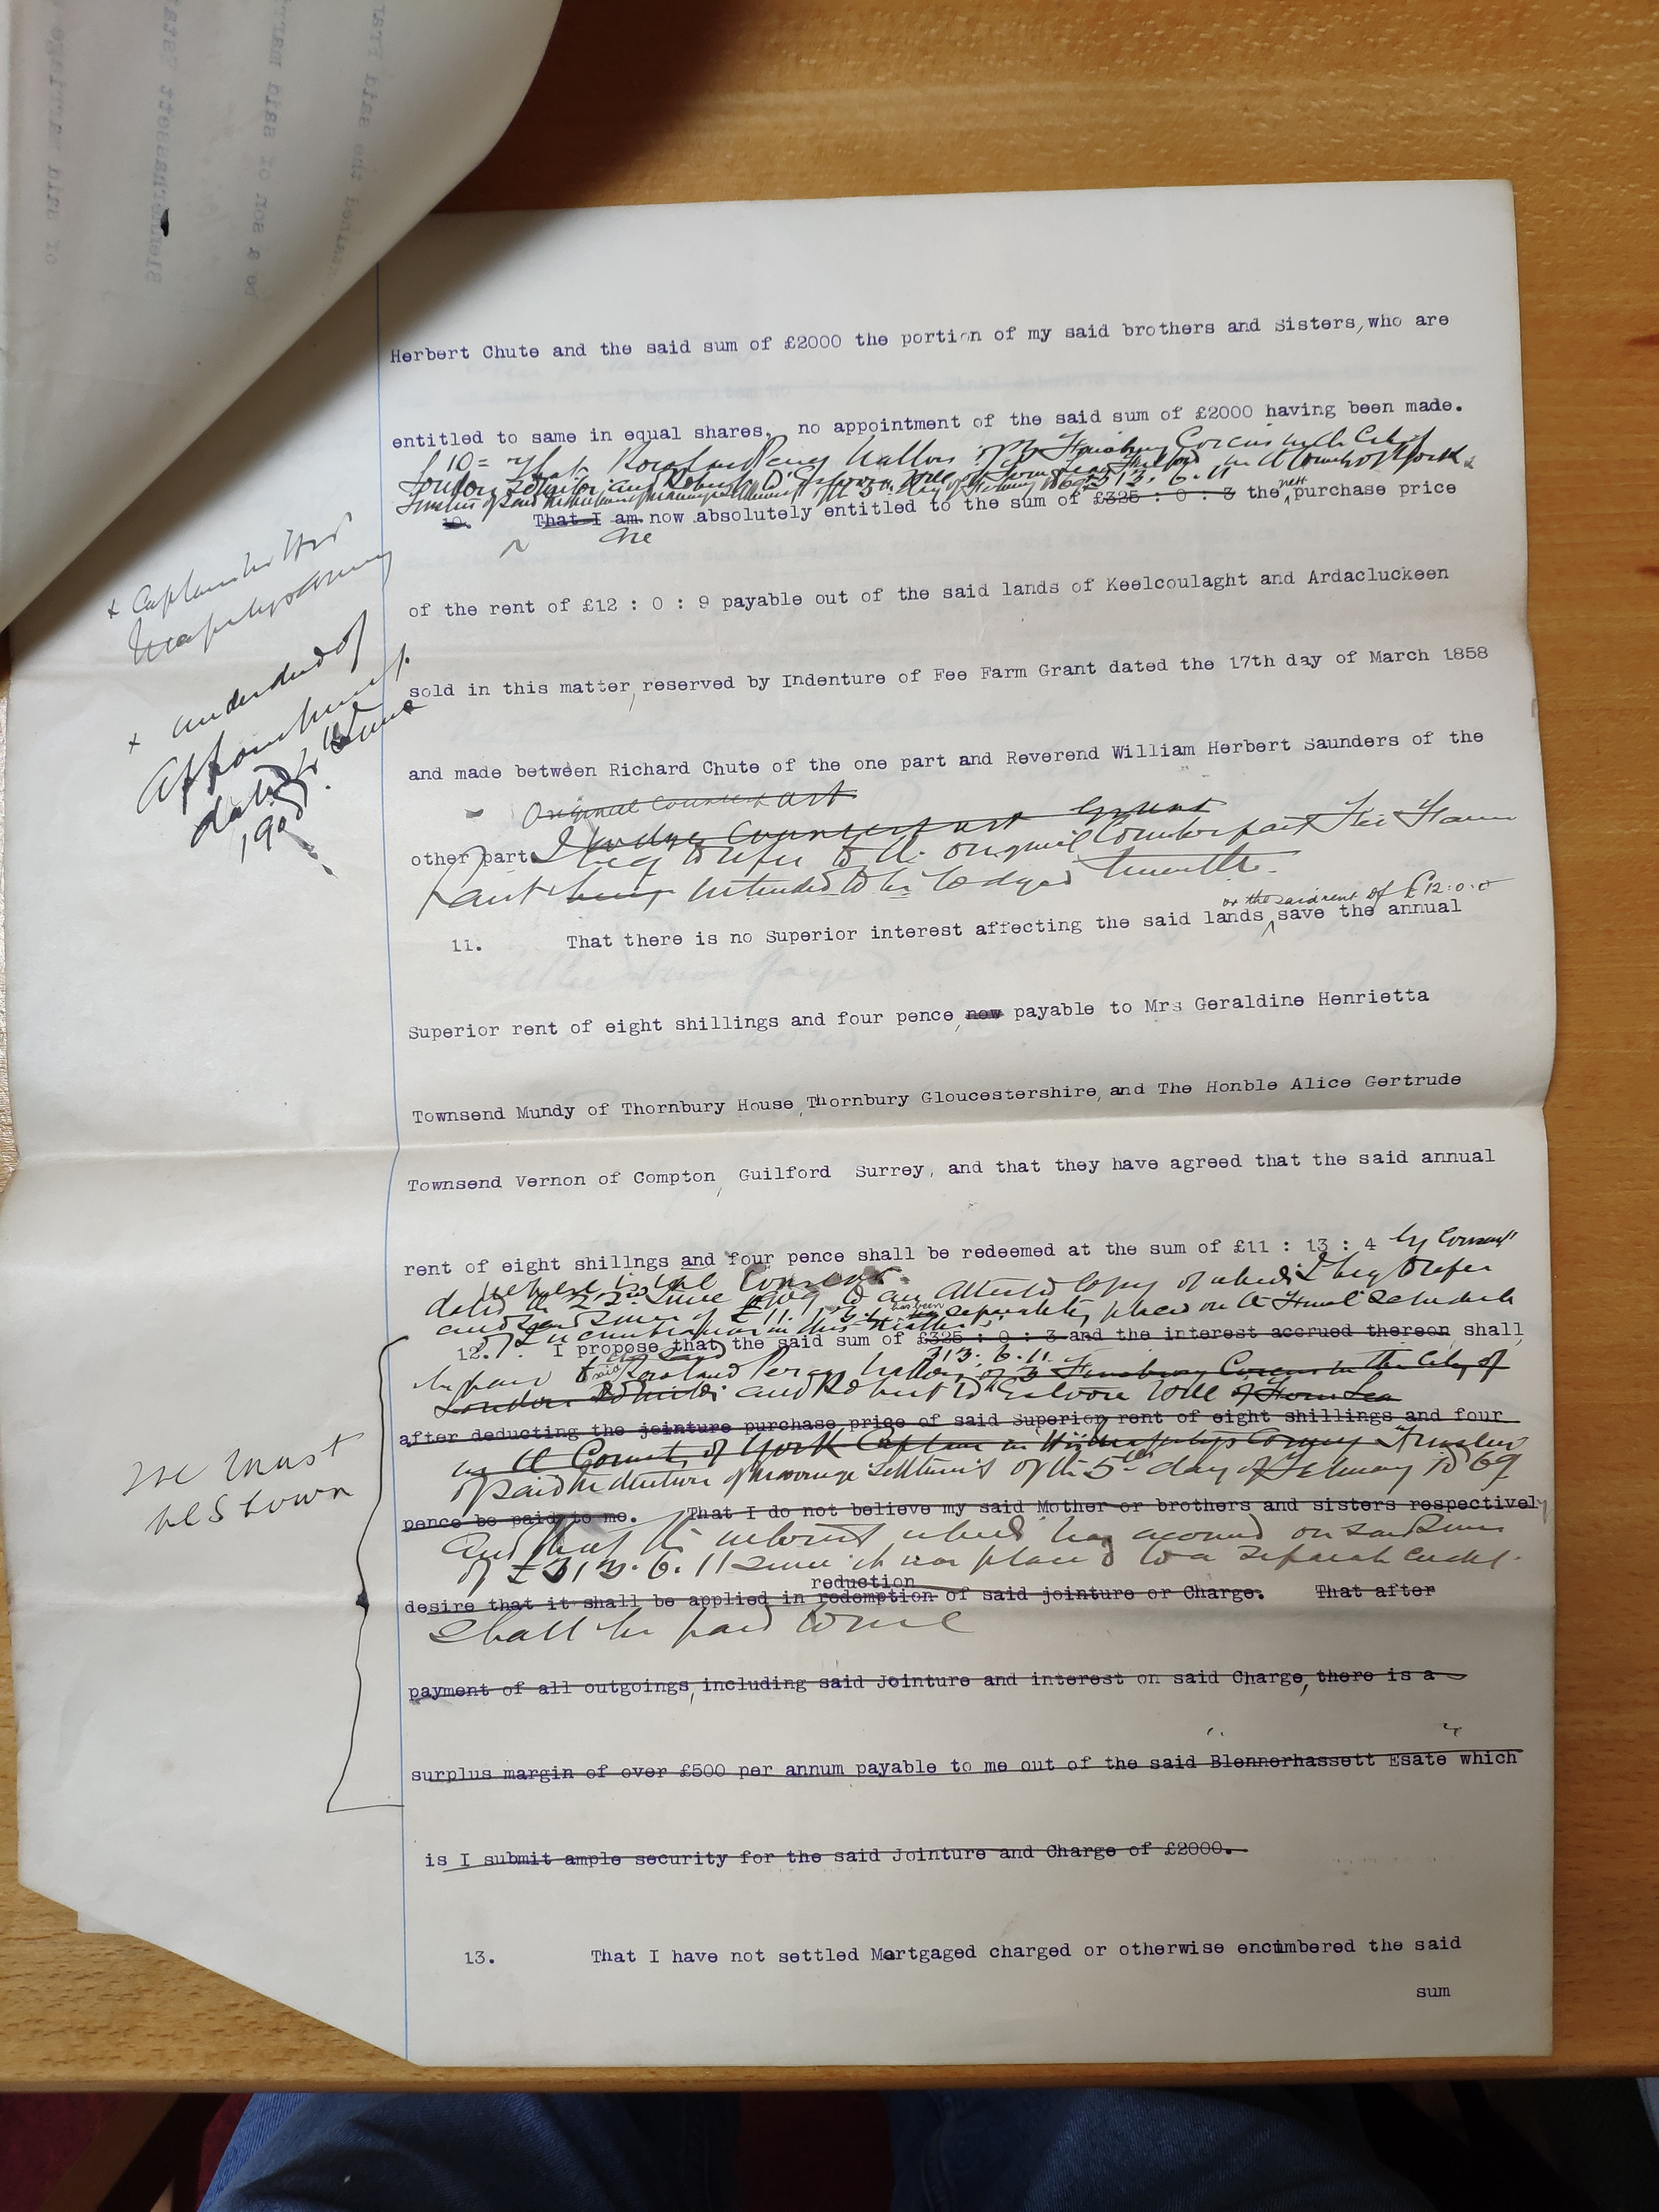 Herbert Chute and the said sum of £2000 the portion of my said brothers and Sisters, who are
entitled to same in equal shares, no appointment of the said sum of £2000 having been made.
10 = That Rowland Percy of Finsbury Circus in the City of
London Solicitor and Robert D' Will of in the County of York
Trustees of said Indenture of marriage Settlement of the 5th day of February 1869 £313. 6. 11
10. That I am now absolutely entitled to the sum of £325 : 0 : 3 the nett purchase price
are
of the rent of £12 : 0 : 9 payable out of the said lands of Keelcoulaght and Ardacluckeen
x Captain in His
Majestys Army
x under deed of
Appointment
dated June
190
sold in this matter, reserved by Indenture of Fee Farm Grant dated the 17th day of March 1858
and made between Richard Chute of the one part and Reverend William Herbert Saunders of the
Original Counterpart
I lodge Counterpart Grant
other part. I beg to refer to the original Counterpart Fee Farm
Grant being intended to be lodged herewith.
or the said rent of £12.0.0
11. That there is no Superior interest affecting the said lands, save the annual
Superior rent of eight shillings and four pence, now payable to Mrs Geraldine Henrietta
Townsend Mundy of Thornbury House, Thornbury Gloucestershire, and The Honble Alice Gertrude
Townsend Vernon of Compton, Guilford Surrey, and that they have agreed that the said annual
rent of eight shillngs and four pence shall be redeemed at the sum of £11 : 13 : 4 by Consent
dated the 22nd June 1909 to an attested Copy of which I beg to refer
and said sum of £11. has been separately placed on the Final Schedule
of Incumbrances in this Matter.
12. I propose that the said sum of £325 : 0 : 3 and the interest accrued thereon shall
313. 6. 11.
be paid to the said Rowland Percy of 3 Finsbury Circus in the City of
London Solicitor and Robert D' Will of Hornsea
after deducting the jointure purchase price of said Superior rent of eight shillings and four
in the County of York Captain in His Majestys Army Trustees
of said Indenture of marriage Settlement of the 5th day of February 1869
We must
pence be paid to me. That I do not believe my said Mother or brothers and sisters respectively
And that the interest which has accrued on said sum
of £313. 6. 11 since it was placed to a separate credit
reduction
desire that it shall be applied in redemption of said jointure or Charge. That after
shall be paid to me
payment of all outgoings, including said Jointure and interest on said Charge, there is a
surplus margin of over £500 per annum payable to me out of the said Blennerhassett Esate which
is I submit ample security for the said Jointure and Charge of £2000.
13. That I have not settled Mortgaged charged or otherwise encumbered the said
sum